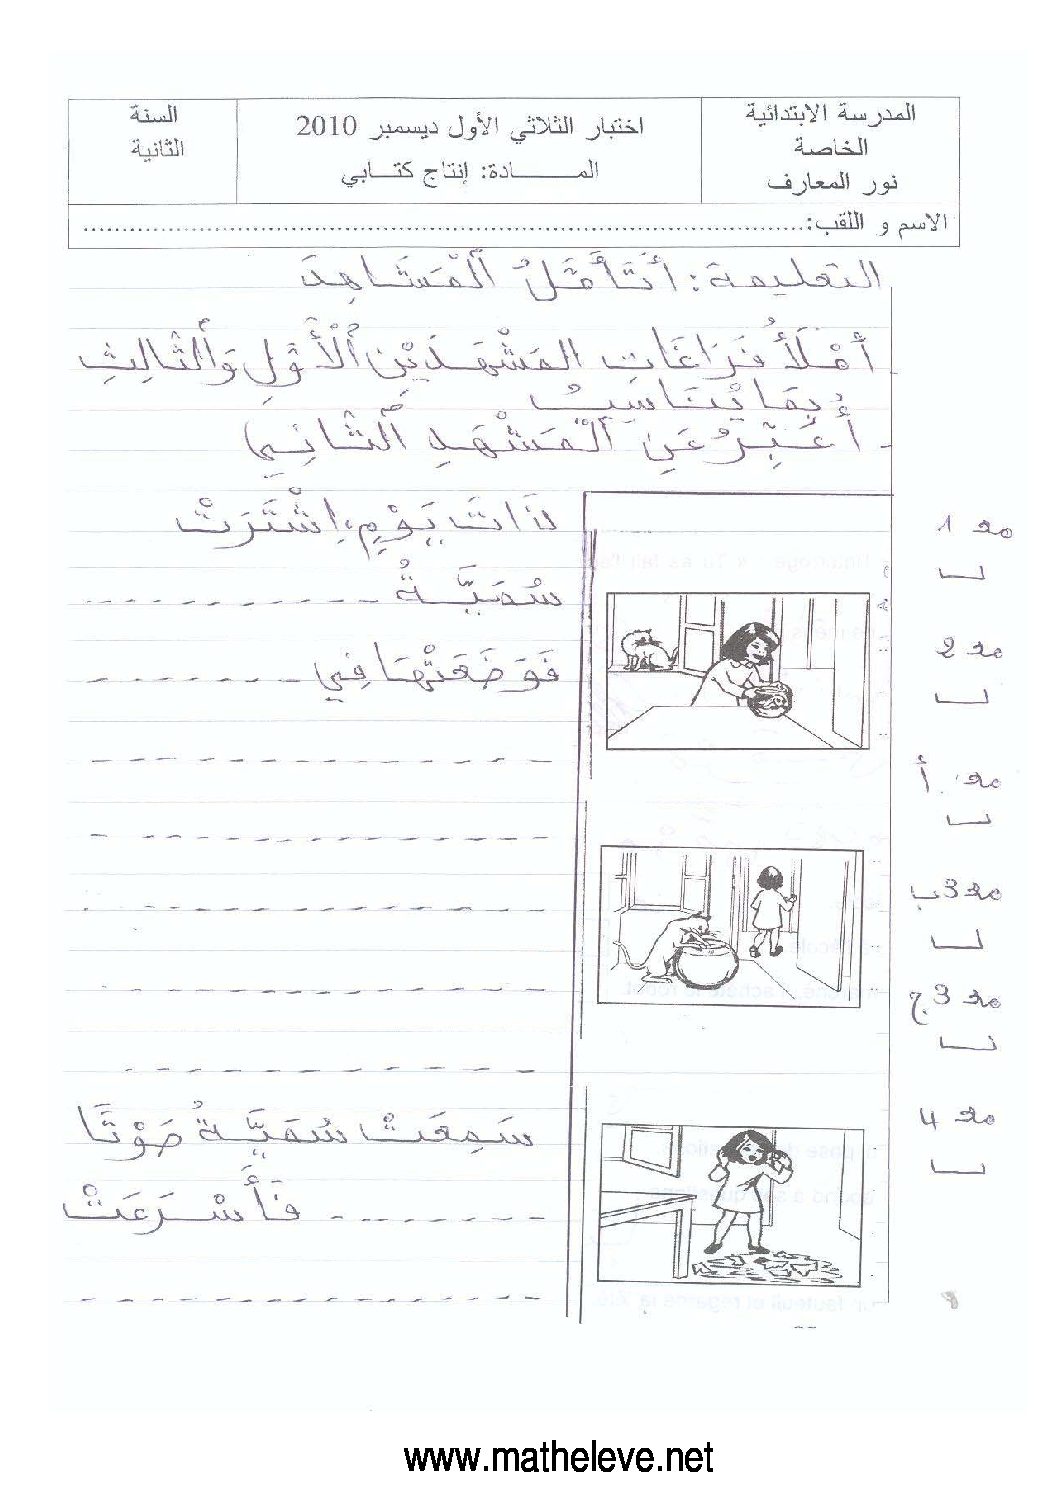 المدرسة الابتدائية
الخاصة
نور المعارف
اختبار الثلاثي الأول ديسمبر 2010
المـــــــادة: إنتاج كتـــابي
السنة
الثانية
الاسم و اللقب:
التعليمة: أَتَأَمَّلُ الْمَشَاهِدَ
أَمْلَأُ فَرَاغَاتِ المَشْهَدَيْنِ الْأَوَّلِ وَالثَّالِثِ
بِمَا يُنَاسِبُ
- أُعَبِّرُ عَنِ الْمَشْهَدِ الثَّانِي
ذَاتَ يَوْمٍ، اِشْتَرَتْ
سُمَيَّةُ
فَوَضَعَتْهَا فِي
سَمِعَتْ سُمَيَّةُ صَوْتًا
فَأَسْرَعَتْ
مع 1
مع 2
مع 3 أ
مع 3 ب
مع 3 ج
مع 4
www.matheleve.net